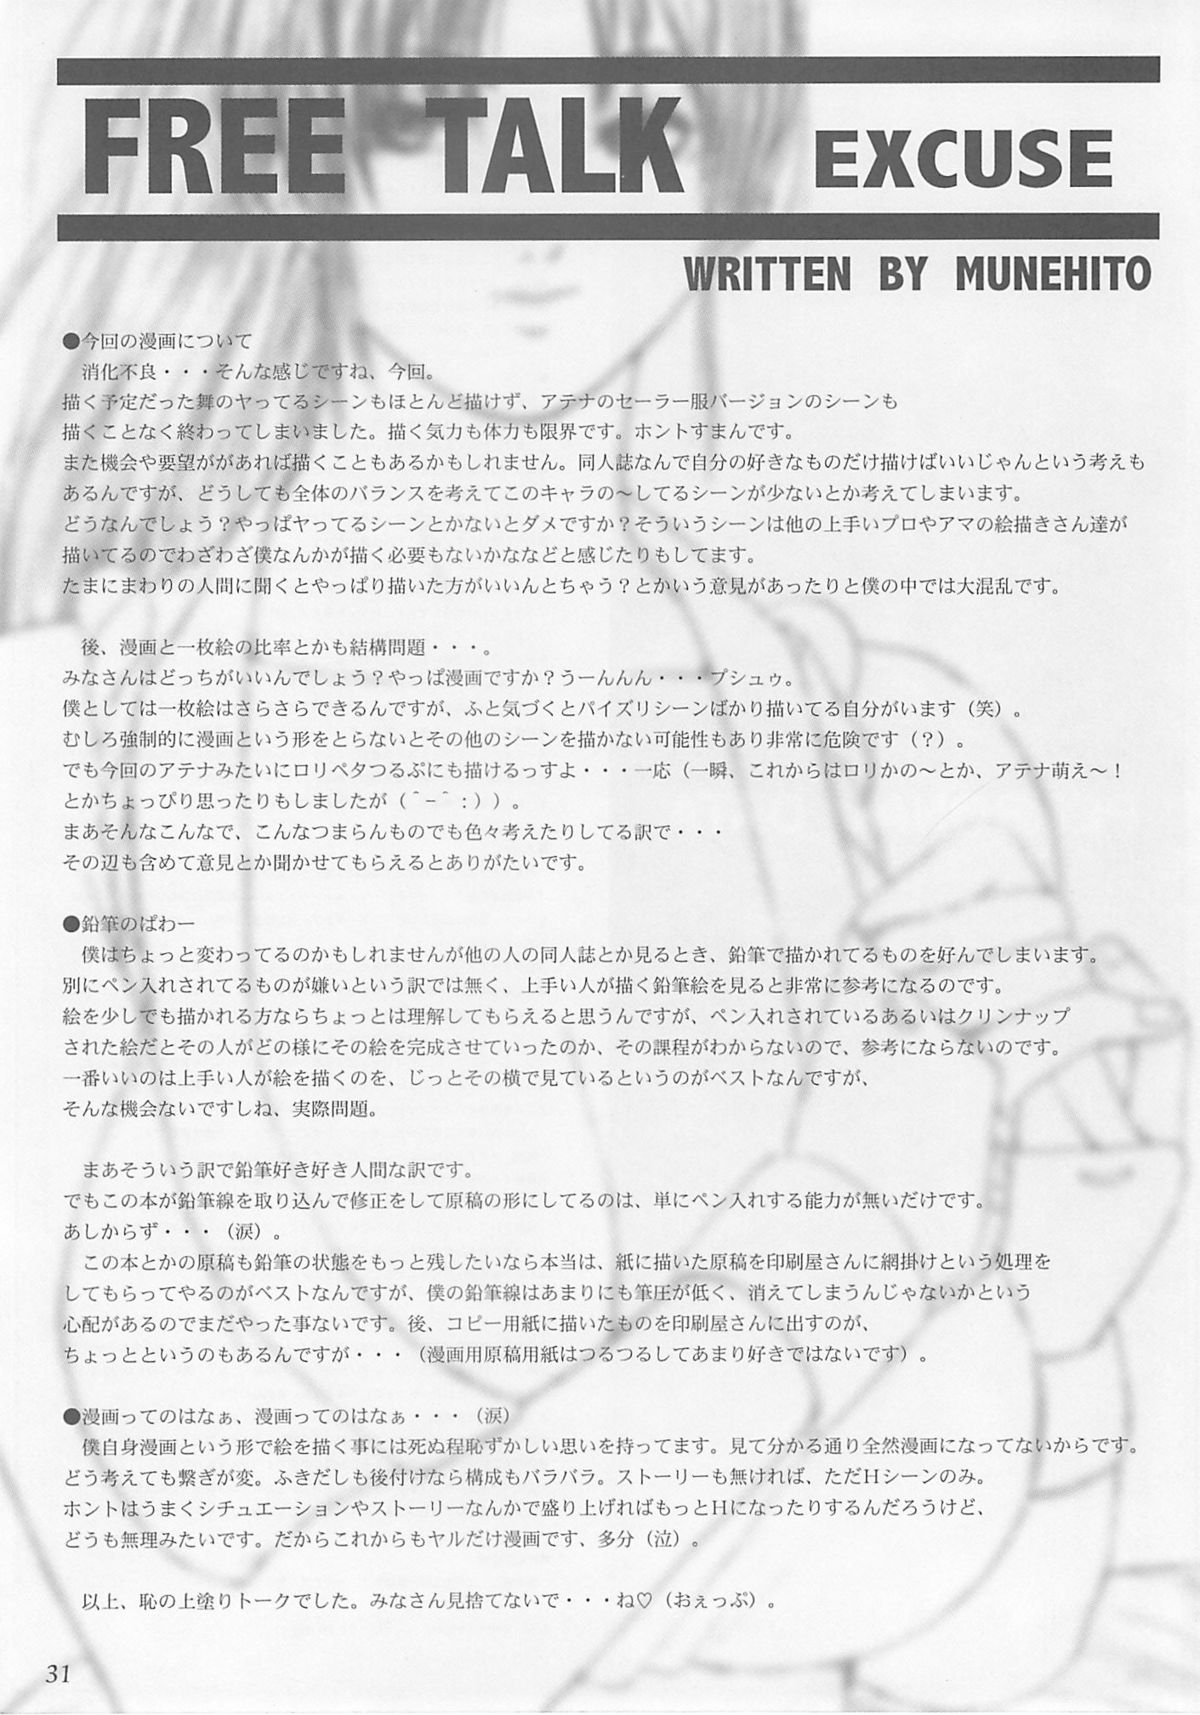 FREE TALK EXCUSE
WRITTEN BY MUNEHITO
●今回の漫画について
消化不良・・・そんな感じですね、今回。
描く予定だった舞のヤってるシーンもほとんど描けず、アテナのセーラー服バージョンのシーンも
描くことなく終わってしまいました。描く気力も体力も限界です。ホントすまんです。
また機会や要望ががあれば描くこともあるかもしれません。同人誌なんで自分の好きなものだけ描けばいいじゃんという考えも
あるんですが、どうしても全体のバランスを考えてこのキャラの～してるシーンが少ないとか考えてしまいます。
どうなんでしょう？やっぱヤってるシーンとかないとダメですか？そういうシーンは他の上手いプロやアマの絵描きさん達が
描いてるのでわざわざ僕なんかが描く必要もないかななどと感じたりもしてます。
たまにまわりの人間に聞くとやっぱり描いた方がいいんとちゃう？とかいう意見があったりと僕の中では大混乱です。
後、漫画と一枚絵の比率とかも結構問題・・・。
みなさんはどっちがいいんでしょう？やっぱ漫画ですか？うーんんん・・・プシュゥ。
僕としては一枚絵はさらさらできるんですが、ふと気づくとパイズリシーンばかり描いてる自分がいます（笑）。
むしろ強制的に漫画という形をとらないとその他のシーンを描かない可能性もあり非常に危険です（？）。
でも今回のアテナみたいにロリペタつるぷにも描けるっすよ・・・一応（一瞬、これからはロリかの～とか、アテナ萌え～！
とかちょっぴり思ったりもしましたが（＾−＾；））。
まあそんなこんなで、こんなつまらんものでも色々考えたりしてる訳で・・・
その辺も含めて意見とか聞かせてもらえるとありがたいです。
●鉛筆のぱわー
僕はちょっと変わってるのかもしれませんが他の人の同人誌とか見るとき、鉛筆で描かれてるものを好んでしまいます。
別にペン入れされてるものが嫌いという訳では無く、上手い人が描く鉛筆絵を見ると非常に参考になるのです。
絵を少しでも描かれる方ならちょっとは理解してもらえると思うんですが、ペン入れされているあるいはクリンナップ
された絵だとその人がどの様にその絵を完成させていったのか、その課程がわからないので、参考にならないのです。
一番いいのは上手い人が絵を描くのを、じっとその横で見ているというのがベストなんですが、
そんな機会ないですしね、実際問題。
まあそういう訳で鉛筆好き好き人間な訳です。
でもこの本が鉛筆線を取り込んで修正をして原稿の形にしてるのは、単にペン入れする能力が無いだけです。
あしからず・・・（涙）。
この本とかの原稿も鉛筆の状態をもっと残したいなら本当は、紙に描いた原稿を印刷屋さんに網掛けという処理を
してもらってやるのがベストなんですが、僕の鉛筆線はあまりにも筆圧が低く、消えてしまうんじゃないかという
心配があるのでまだやった事ないです。後、コピー用紙に描いたものを印刷屋さんに出すのが、
ちょっとというのもあるんですが・・・（漫画用原稿用紙はつるつるしてあまり好きではないです）。
●漫画ってのはなぁ、漫画ってのはなぁ・・・（涙）
僕自身漫画という形で絵を描く事には死ぬ程恥ずかしい思いを持ってます。見て分かる通り全然漫画になってないからです。
どう考えても繋ぎが変。ふきだしも後付けなら構成もバラバラ。ストーリーも無ければ、ただHシーンのみ。
ホントはうまくシチュエーションやストーリーなんかで盛り上げればもっとHになったりするんだろうけど、
どうも無理みたいです。だからこれからもヤルだけ漫画です、多分（泣）。
以上、恥の上塗りトークでした。みなさん見捨てないで・・・ね♡（おぇっぷ）。
31